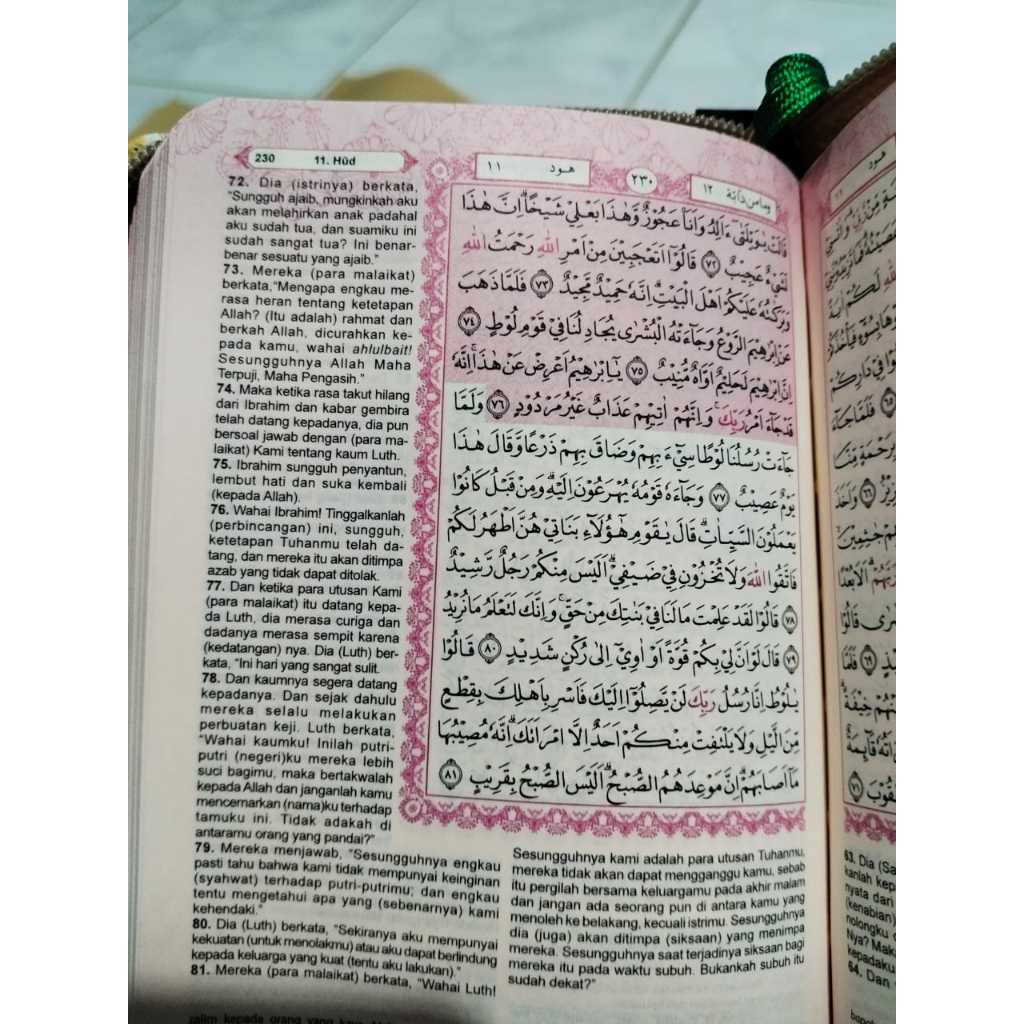 230 11. Hūd
72. Dia (istrinya) berkata,
"Sungguh ajaib, mungkinkah aku
akan melahirkan anak padahal
aku sudah tua, dan suamiku ini
sudah sangat tua? Ini benar-
benar sesuatu yang ajaib."
73. Mereka (para malaikat)
berkata,"Mengapa engkau me-
rasa heran tentang ketetapan
Allah? (Itu adalah) rahmat dan
berkah Allah, dicurahkan ke-
pada kamu, wahai ahlulbait!
Sesungguhnya Allah Maha
Terpuji, Maha Pengasih."
74. Maka ketika rasa takut hilang
dari Ibrahim dan kabar gembira
telah datang kepadanya, dia pun
bersoal jawab dengan (para ma-
laikat) Kami tentang kaum Luth.
75. Ibrahim sungguh penyantun,
lembut hati dan suka kembali
(kepada Allah).
76. Wahai Ibrahim! Tinggalkanlah
(perbincangan) ini, sungguh,
ketetapan Tuhanmu telah da-
tang, dan mereka itu akan ditimpa
azab yang tidak dapat ditolak.
77. Dan ketika para utusan Kami
(para malaikat) itu datang kepa-
da Luth, dia merasa curiga dan
dadanya merasa sempit karena
(kedatangan) nya. Dia (Luth) ber-
kata, "Ini hari yang sangat sulit.
78. Dan kaumnya segera datang
kepadanya. Dan sejak dahulu
mereka selalu melakukan
perbuatan keji. Luth berkata,
"Wahai kaumku! Inilah putri-
putri (negeri)ku mereka lebih
suci bagimu, maka bertakwalah
kepada Allah dan janganlah kamu
mencemarkan (nama)ku terhadap
tamuku ini. Tidak adakah di
antaramu orang yang pandai?"
79. Mereka menjawab, "Sesungguhnya engkau
pasti tahu bahwa kami tidak mempunyai keinginan
(syahwat) terhadap putri-putrimu; dan engkau
tentu mengetahui apa yang (sebenarnya) kami
kehendaki."
80. Dia (Luth) berkata, "Sekiranya aku mempunyai
kekuatan (untuk menolakmu) atau aku dapat berlindung
kepada keluarga yang kuat (tentu aku lakukan)."
81. Mereka (para malaikat) berkata, "Wahai Luth!
Sesungguhnya kami adalah para utusan Tuhanmu,
mereka tidak akan dapat mengganggu kamu, sebab
itu pergilah bersama keluargamu pada akhir malam
dan jangan ada seorang pun di antara kamu yang
menoleh ke belakang, kecuali istrimu. Sesungguhnya
dia (juga) akan ditimpa (siksaan) yang menimpa
mereka. Sesungguhnya saat terjadinya siksaan bagi
mereka itu pada waktu subuh. Bukankah subuh itu
sudah dekat?"
ومامن دآبة ١٢ ٢٣٠ هود ١١
قَالَتْ يٰوَيْلَتٰٓى ءَاَلِدُ وَاَنَا۠ عَجُوْزٌ وَّهٰذَا بَعْلِيْ شَيْخًا ۗاِنَّ هٰذَا
لَشَيْءٌ عَجِيْبٌ ٧٢ قَالُوْٓا اَتَعْجَبِيْنَ مِنْ اَمْرِ اللّٰهِ رَحْمَتُ اللّٰهِ
وَبَرَكٰتُهٗ عَلَيْكُمْ اَهْلَ الْبَيْتِ ۗاِنَّهٗ حَمِيْدٌ مَّجِيْدٌ ٧٣ فَلَمَّا ذَهَبَ
عَنْ اِبْرٰهِيْمَ الرَّوْعُ وَجَاۤءَتْهُ الْبُشْرٰى يُجَادِلُنَا فِيْ قَوْمِ لُوْطٍ ٧٤
اِنَّ اِبْرٰهِيْمَ لَحَلِيْمٌ اَوَّاهٌ مُّنِيْبٌ ٧٥ يٰٓاِبْرٰهِيْمُ اَعْرِضْ عَنْ هٰذَا ۚاِنَّهٗ
قَدْ جَاۤءَ اَمْرُ رَبِّكَ ۚوَاِنَّهُمْ اٰتِيْهِمْ عَذَابٌ غَيْرُ مَرْدُوْدٍ ٧٦ وَلَمَّا
جَاۤءَتْ رُسُلُنَا لُوْطًا سِيْۤءَ بِهِمْ وَضَاقَ بِهِمْ ذَرْعًا وَّقَالَ هٰذَا
يَوْمٌ عَصِيْبٌ ٧٧ وَجَاۤءَهٗ قَوْمُهٗ يُهْرَعُوْنَ اِلَيْهِ ۗوَمِنْ قَبْلُ كَانُوْا
يَعْمَلُوْنَ السَّيِّاٰتِ ۗقَالَ يٰقَوْمِ هٰٓؤُلَاۤءِ بَنَاتِيْ هُنَّ اَطْهَرُ لَكُمْ
فَاتَّقُوا اللّٰهَ وَلَا تُخْزُوْنِ فِيْ ضَيْفِيْ ۗاَلَيْسَ مِنْكُمْ رَجُلٌ رَّشِيْدٌ
٧٨ قَالُوْا لَقَدْ عَلِمْتَ مَا لَنَا فِيْ بَنٰتِكَ مِنْ حَقٍّ ۚوَاِنَّكَ لَتَعْلَمُ مَا نُرِيْدُ
٧٩ قَالَ لَوْ اَنَّ لِيْ بِكُمْ قُوَّةً اَوْ اٰوِيْٓ اِلٰى رُكْنٍ شَدِيْدٍ ٨٠ قَالُوْا
يٰلُوْطُ اِنَّا رُسُلُ رَبِّكَ لَنْ يَّصِلُوْٓا اِلَيْكَ فَاَسْرِ بِاَهْلِكَ بِقِطْعٍ
مِّنَ الَّيْلِ وَلَا يَلْتَفِتْ مِنْكُمْ اَحَدٌ اِلَّا امْرَاَتَكَ ۗاِنَّهٗ مُصِيْبُهَا
مَآ اَصَابَهُمْ ۗاِنَّ مَوْعِدَهُمُ الصُّبْحُ ۗاَلَيْسَ الصُّبْحُ بِقَرِيْبٍ ٨١
هود
لَكُمْ اٰيَةً
فِيْ دَارِكُمْ
فَلَمَّا جَاۤءَ
بِرَحْمَةٍ مِّنَّا
63. Dia (Sa
kanlah kep
nyata dari
(kenabian)
nolongku d
Nya? Maka
kepadaku
64. Dan